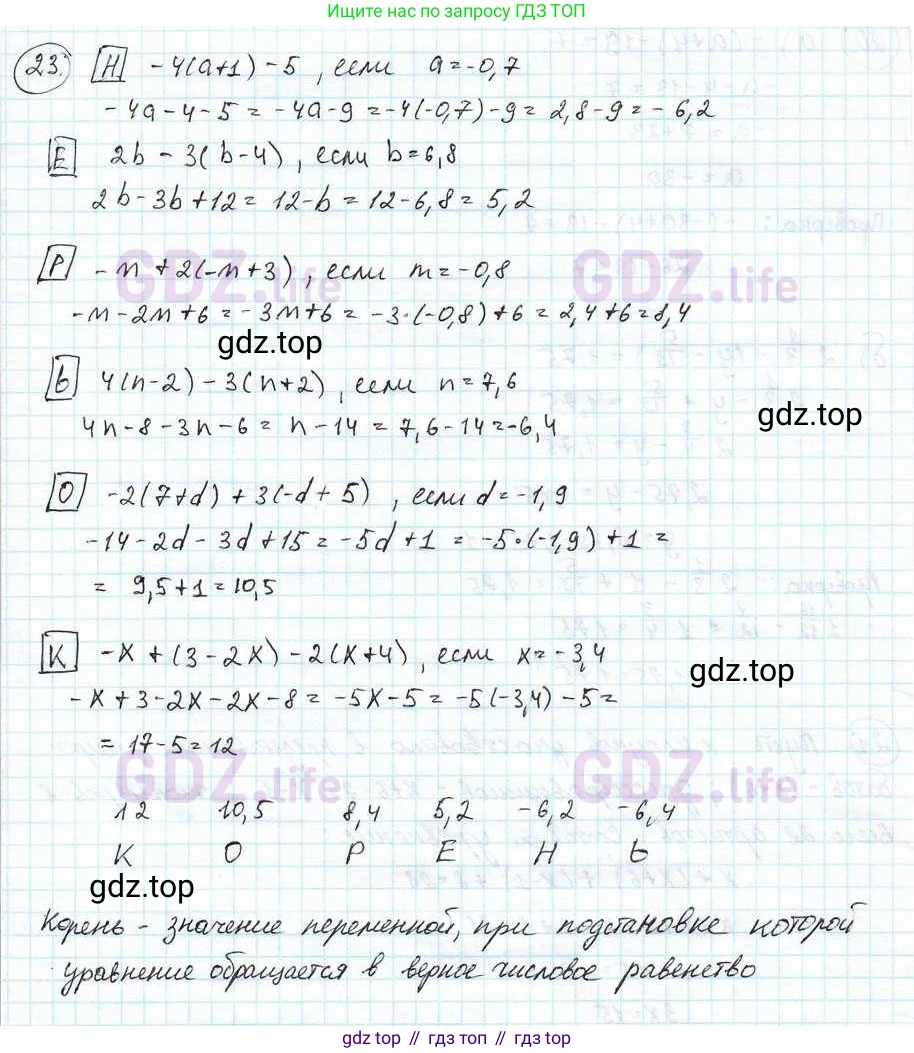 Ищите нас по запросу ГДЗ ТОП
23. Н -4(a+1)-5, если a=-0,7
-4a-4-5=-4a-9=-4(-0,7)-9=2,8-9=-6,2
Е 2b-3(b-4), если b=6,8
2b-3b+12=12-b=12-6,8=5,2
GDZ.life GDZ.life
Р -m+2(-m+3), если m=-0,8
-m-2m+6=-3m+6=-3·(-0,8)+6=2,4+6=8,4
gdz.top
Ь 4(n-2)-3(n+2), если n=7,6
gdz.top
4n-8-3n-6=n-14=7,6-14=-6,4
О -2(7+d)+3(-d+5), если d=-1,9
-14-2d-3d+15=-5d+1=-5·(-1,9)+1=
= 9,5+1=10,5
К -x+(3-2x)-2(x+4), если x=-3,4
gdz.top
-x+3-2x-2x-8=-5x-5=-5(-3,4)-5=
= 17-5=12
GDZ.life GDZ.life
12 10,5 8,4 5,2 -6,2 -6,4
К О Р Е Н Ь
gdz.top
Корень - значение переменной, при подстановке которой
уравнение обращается в верное числовое равенство
gdz.top // гдз топ // gdz.top